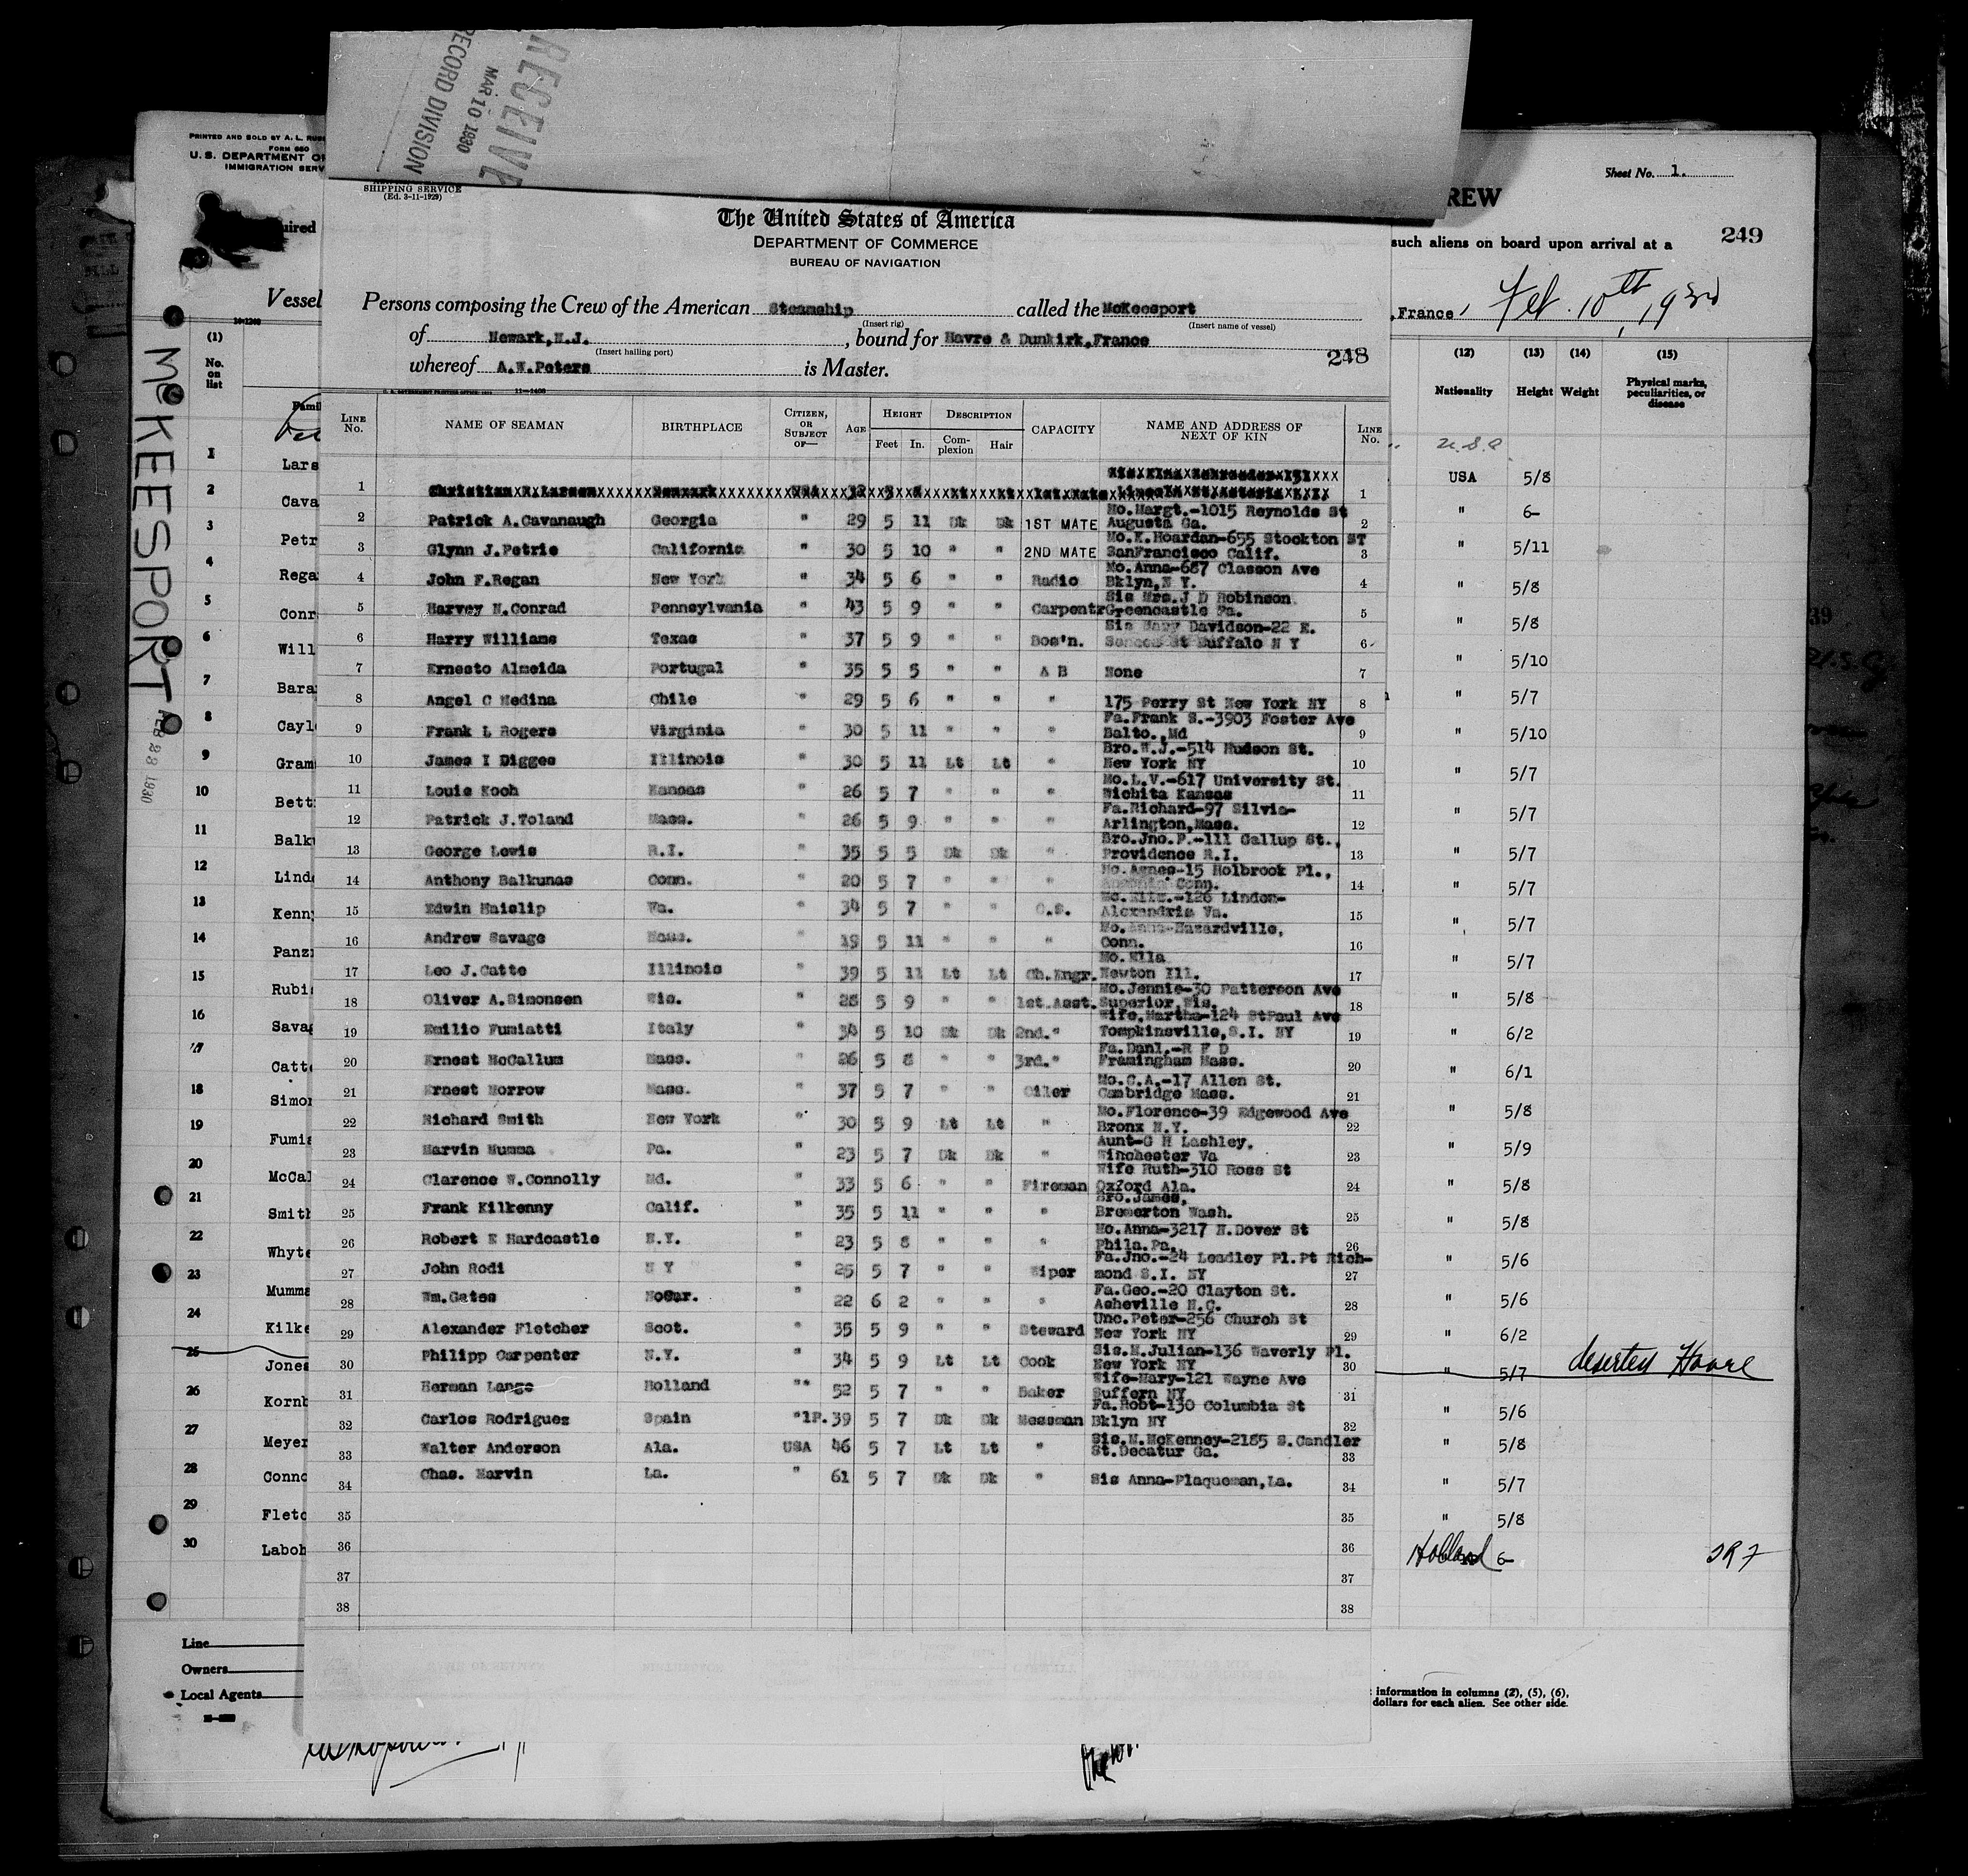 RECEIVE
MAR 10 1930
RECORD DIVISION
PRINTED AND SOLD BY A. L. RUS
FORM 680
U. S. DEPARTMENT O
IMMIGRATION SERV
uired
Vessel
McKEESPORT
FEB 28 1930
SHIPPING SERVICE
(Ed. 3-11-1929)
The United States of America
DEPARTMENT OF COMMERCE
BUREAU OF NAVIGATION
Persons composing the Crew of the American Steamship called the McKeesport
(Insert rig) (Insert name of vessel)
of Newark,N.J. , bound for Havre & Dunkirk,France
(Insert hailing port)
whereof A.W.Peters is Master. 248
11—1406
LINE No. NAME OF SEAMAN BIRTHPLACE CITIZEN, OR SUBJECT OF— AGE HEIGHT Feet In. DESCRIPTION Complexion Hair CAPACITY NAME AND ADDRESS OF NEXT OF KIN LINE No.
1 Christian Larsen Denmark USA 32 1st Mate 1
2 Patrick A.Cavanaugh Georgia " 29 5 11 Dk Dk 1ST MATE Mo.Margt.-1015 Reynolds St Augusta Ga. 2
3 Glynn J.Petrie California " 30 5 10 " " 2ND MATE Mo.K.Hoardan-655 Stockton ST SanFrancisco Calif. 3
4 John F.Regan New York " 34 5 6 " " Radio Mo.Anna-687 Classon Ave Bklyn,N Y. 4
5 Harvey N.Conrad Pennsylvania " 43 5 9 " " Carpentr Sis Mrs.J D Robinson Greencastle Pa. 5
6 Harry Williams Texas " 37 5 9 " " Bos'n. Sis Mary Davidson-22 E. Seneca St Buffalo N Y 6
7 Ernesto Almeida Portugal " 35 5 5 " " A B None 7
8 Angel C Medina Chile " 29 5 6 " " " 175 Perry St New York NY 8
9 Frank L Rogers Virginia " 30 5 11 " " " Fa.Frank S.-3903 Foster Ave Balto.,Md 9
10 James I Digges Illinois " 30 5 11 Lt Lt " Bro.W.J.-514 Hudson St. New York NY 10
11 Louis Koch Kansas " 26 5 7 " " " Mo.L.V.-617 University St. Wichita Kansas 11
12 Patrick J.Toland Mass. " 26 5 9 " " " Fa.Richard-97 Silvia- Arlington,Mass. 12
13 George Lewis R.I. " 35 5 5 Dk Dk " Bro.Jno.P.-111 Gallup St., Providence R.I. 13
14 Anthony Balkunas Conn. " 20 5 7 " " " Mo.Agnes-15 Holbrook Pl., Conn. 14
15 Edwin Haislip Va. " 34 5 7 " " O.S. Mo.Eliz.-126 Linden- Alexandria Va. 15
16 Andrew Savage Mass. " 19 5 11 " " " Mo.Anna-Hazardville, Conn. 16
17 Leo J.Catte Illinois " 39 5 11 Lt Lt Ch.Engr. Mo.Ella Newton Ill. 17
18 Oliver A.Simonsen Wis. " 28 5 9 " " 1st.Asst. Mo.Jennie-30 Patterson Ave Superior,Wis. 18
19 Emilio Fumiatti Italy " 34 5 10 Dk Dk 2nd." Wife.Martha-124 StPaul Ave Tompkinsville,S.I. NY 19
20 Ernest McCallum Mass. " 26 5 8 " " 3rd." Fa.Danl.-R F D Framingham Mass. 20
21 Ernest Morrow Mass. " 37 5 7 " " Oiler Mo.C.A.-17 Allen St. Cambridge Mass. 21
22 Richard Smith New York " 30 5 9 Lt Lt " Mo.Florence-39 Edgewood Ave Bronx N.Y. 22
23 Marvin Mumma Pa. " 23 5 7 Dk Dk " Aunt-G H Lashley. Winchester Va 23
24 Clarence W.Connolly Md. " 33 5 6 " " Fireman Wife Ruth-310 Rose St Oxford Ala. 24
25 Frank Kilkenny Calif. " 35 5 11 " " " Bro.James, Bremerton Wash. 25
26 Robert E Hardcastle N.Y. " 23 5 8 " " " Mo.Anna-3217 N.Dover St Phila.Pa. 26
27 John Rodi N Y " 25 5 7 " " Wiper Fa.Jno.-24 Leadley Pl.Pt Rich- mond S.I. NY 27
28 Wm.Gates NoCar. " 22 6 2 " " " Fa.Geo.-20 Clayton St. Asheville N.C. 28
29 Alexander Fletcher Scot. " 35 5 9 " " Steward Unc.Peter-256 Church St New York NY 29
30 Philipp Carpenter N.Y. " 34 5 9 Lt Lt Cook Sis.M.Julian-136 Waverly Pl. New York NY 30
31 Herman Lange Holland "" 52 5 7 " " Baker Wife-Mary-121 Wayne Ave Suffern NY 31
32 Carlos Rodriguez Spain "1P. 39 5 7 Dk Dk Messman Fa.Robt-130 Columbia St Bklyn NY 32
33 Walter Anderson Ala. USA 46 5 7 Lt Lt " Sis.M.McKenney-2185 S.Candler St.Decatur Ga. 33
34 Chas. Marvin La. " 61 5 7 Dk Dk " Sis Anna-Plaqueman,La. 34
35 35
36 36
37 37
38 38
(1) No. on list Famil
1 Lars
2 Cava
3 Petr
4 Rega
5 Conr
6 Will
7 Bara
8 Cayl
9 Gram
10 Bett
11 Balk
12 Lind
13 Kenn
14 Panz
15 Rubi
16 Sava
17 Catt
18 Simo
19 Fumi
20 McCal
21 Smith
22 Whyte
23 Mumma
24 Kilke
25 Jones
26 Kornb
27 Meyer
28 Conno
29 Fletc
30 Laboh
Line
Owners
Local Agents
Sheet No. 1.
REW
such aliens on board upon arrival at a 249
, France, Feb. 10th, 193
(12) Nationality (13) Height (14) Weight (15) Physical marks, peculiarities, or disease
U.S.A.
USA 5/8
" 6-
" 5/11
" 5/8
" 5/8
" 5/10
" 5/7
" 5/10
" 5/7
" 5/7
" 5/7
" 5/7
" 5/7
" 5/7
" 5/8
" 6/2
" 6/1
" 5/8
" 5/9
" 5/8
" 5/8
" 5/6
" 5/6
" 6/2
" 5/7 deserted Havre
" 5/6
" 5/8
" 5/7
" 5/8
Holland 6-
information in columns (2), (5), (6),
dollars for each alien. See other side.